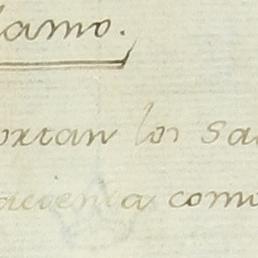 lamo.
ortan los sa
acienta como